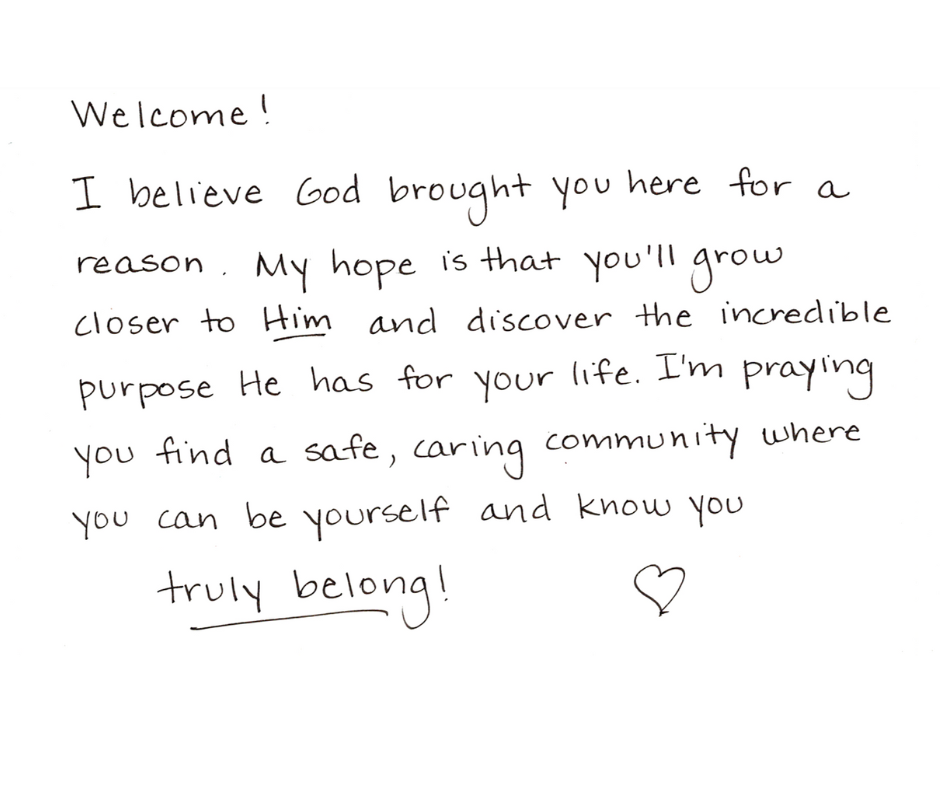 Welcome!
I believe God brought you here for a
reason. My hope is that you'll grow
closer to Him and discover the incredible
purpose He has for your life. I'm praying
you find a safe, caring community where
you can be yourself and know you
truly belong!